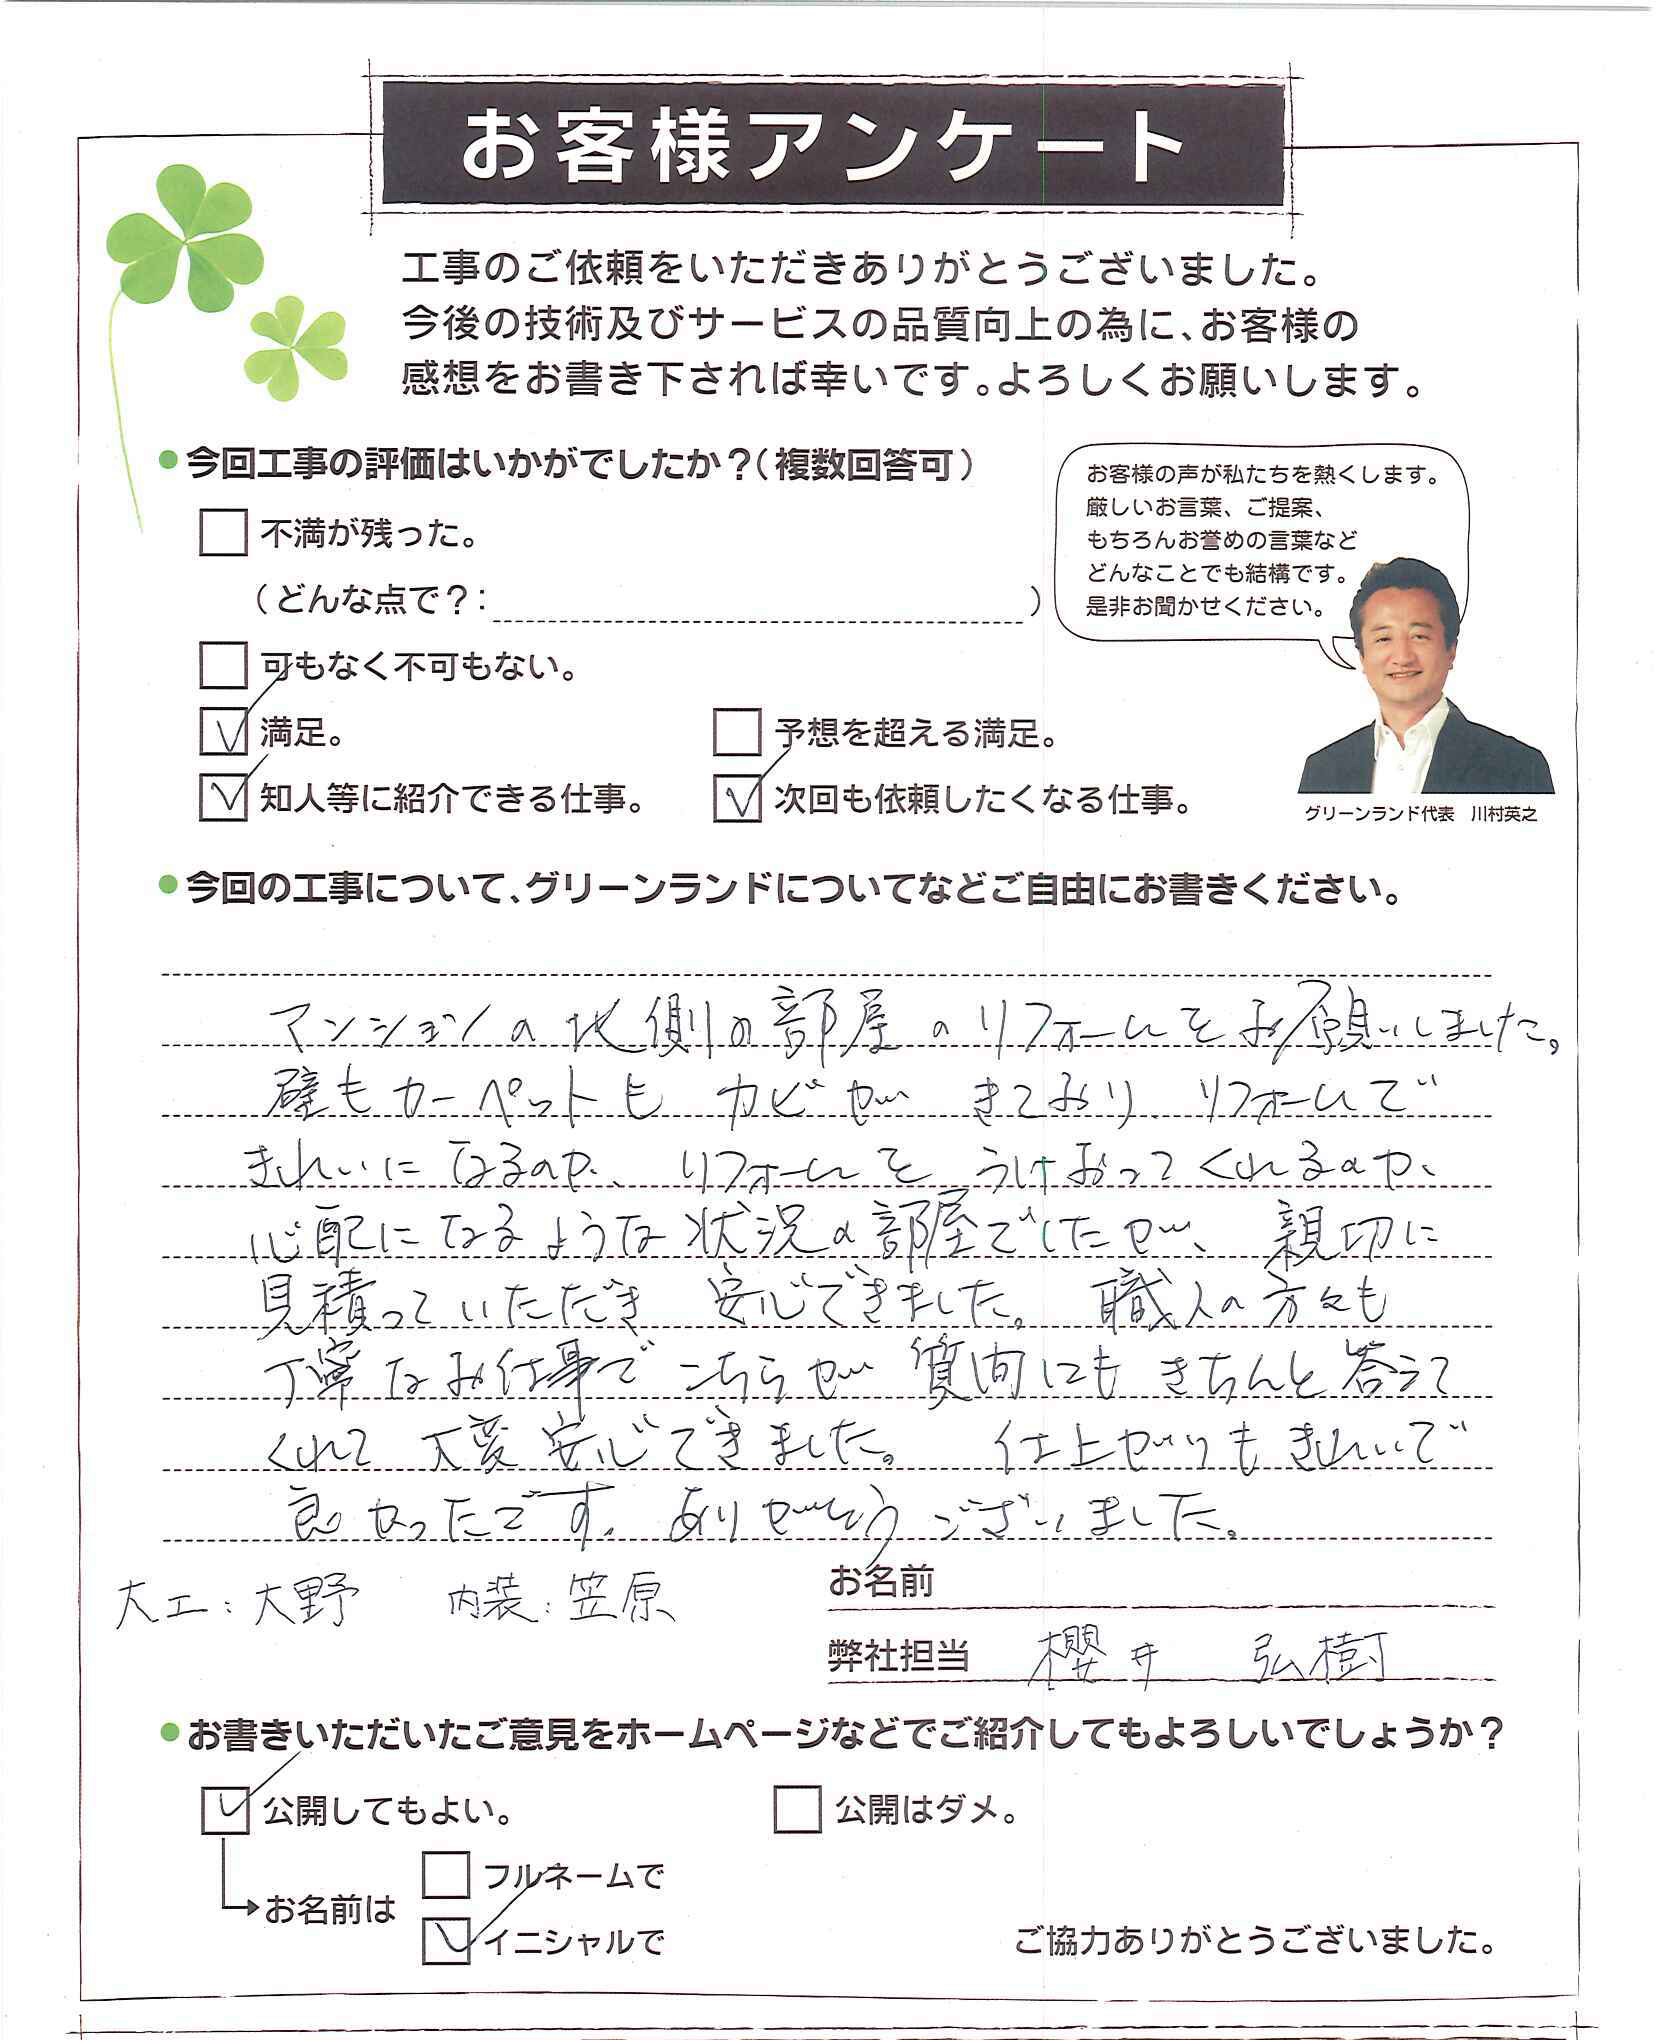 お客様アンケート
工事のご依頼をいただきありがとうございました。
今後の技術及びサービスの品質向上の為に、お客様の
感想をお書き下されば幸いです。よろしくお願いします。
●今回工事の評価はいかがでしたか？（複数回答可）
お客様の声が私たちを熱くします。
厳しいお言葉、ご提案、
もちろんお誉めの言葉など
どんなことでも結構です。
是非お聞かせください。
不満が残った。
（どんな点で？：　）
可もなく不可もない。
満足。
予想を超える満足。
知人等に紹介できる仕事。
次回も依頼したくなる仕事。
グリーンランド代表　川村英之
●今回の工事について、グリーンランドについてなどご自由にお書きください。
マンションの北側の部屋のリフォームをお願いしました。
壁もカーペットも カビが きており、リフォームで
きれいになるのか、リフォームを うけおってくれるのか、
心配になるような状況の部屋でしたが、親切に
見積っていただき 安心できました。職人の方々も
丁寧なお仕事で こちらが 質問にも きちんと答えて
くれて 大変安心できました。 仕上がりもきれいで
良かったです。ありがとうございました。
大工：大野　内装：笠原
お名前
弊社担当　櫻井　弘樹
●お書きいただいたご意見をホームページなどでご紹介してもよろしいでしょうか？
公開してもよい。
公開はダメ。
フルネームで
お名前は
イニシャルで
ご協力ありがとうございました。